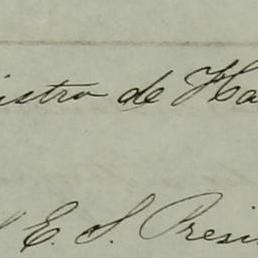 istro de Ha
E. S. Presi